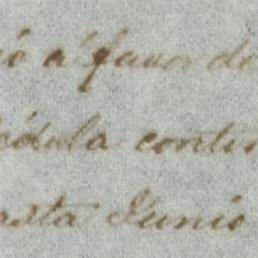 ó a favor d
édula contin
asta Junio